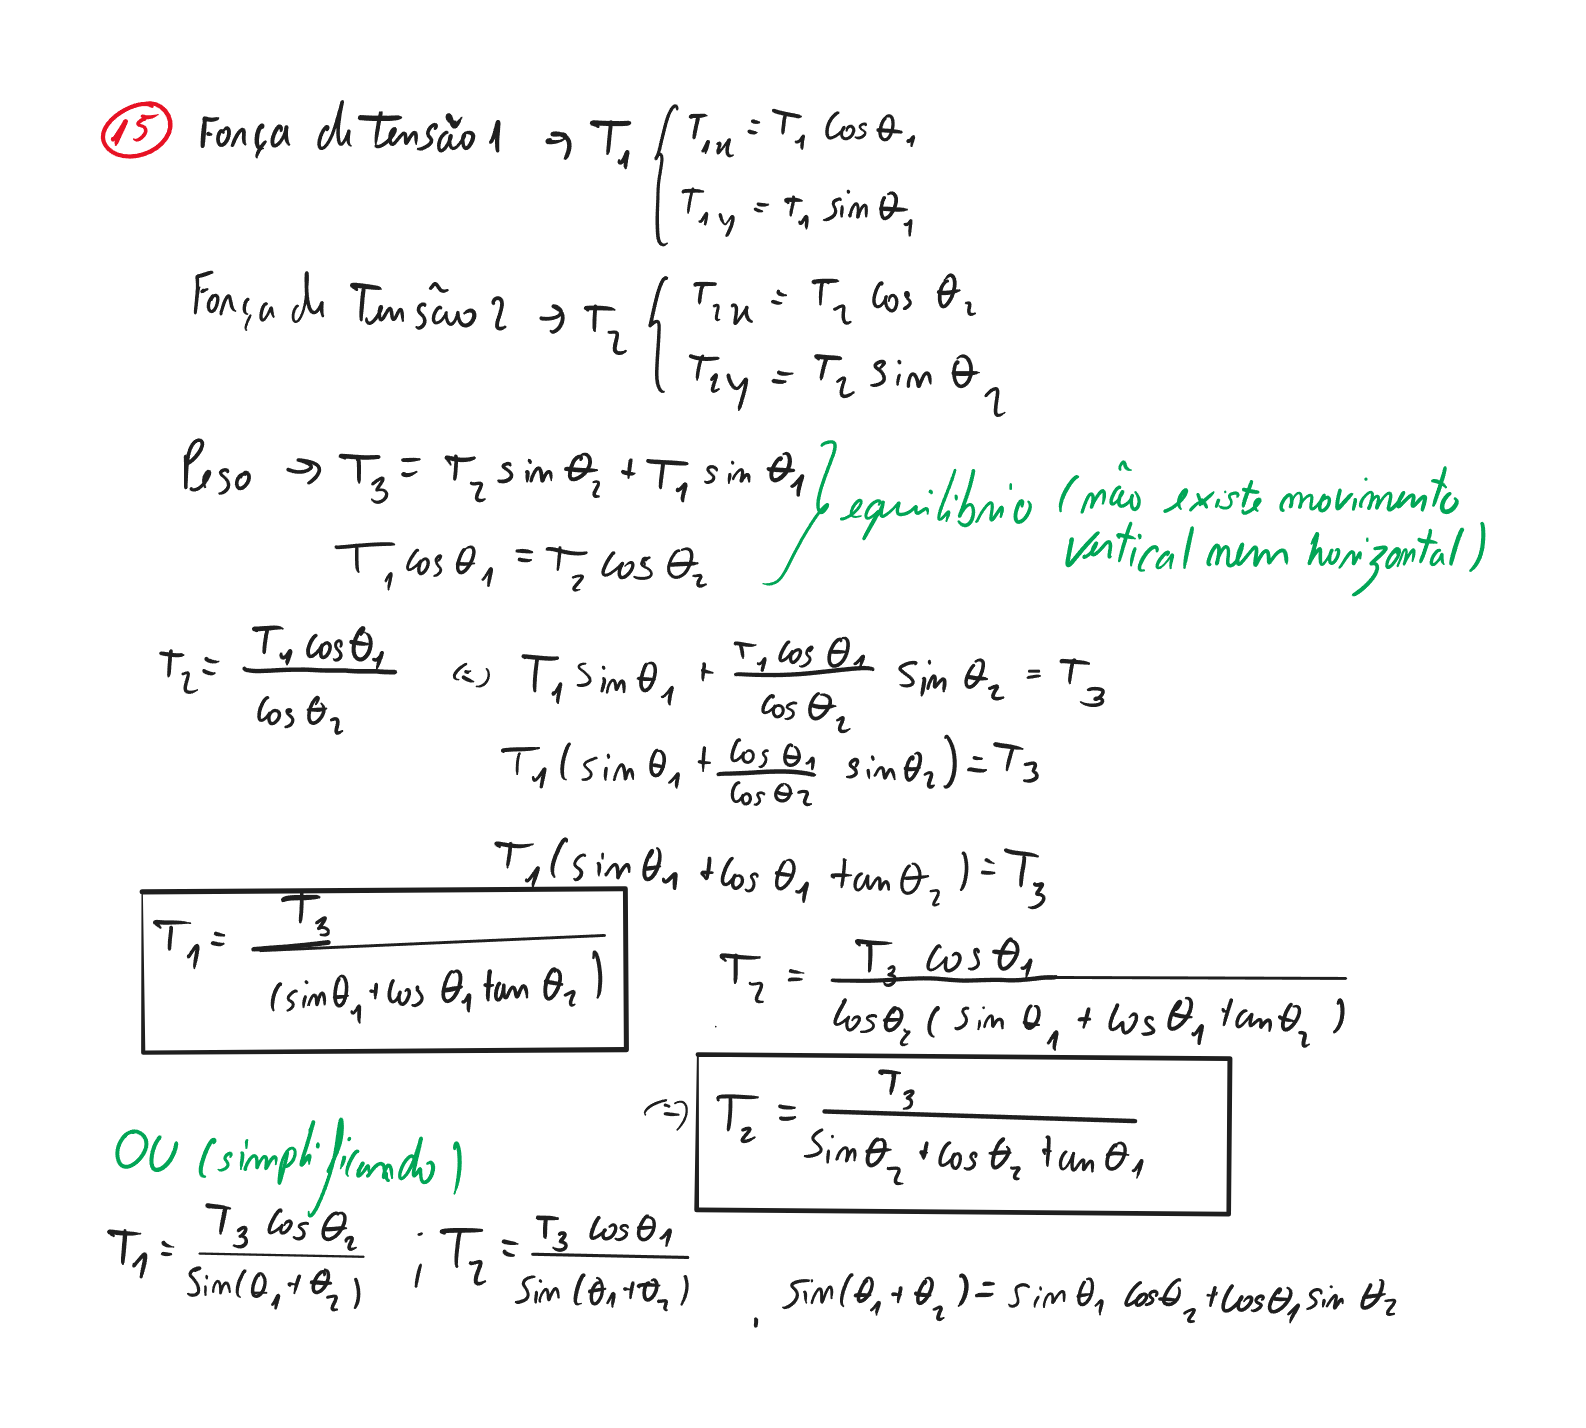 15 Força de Tensão 1 → T₁ { T₁ₓ = T₁ cos θ₁
T₁y = T₁ sin θ₁
Força de Tensão 2 → T₂ { T₂ₓ = T₂ cos θ₂
T₂y = T₂ sin θ₂
Peso → T₃ = T₂ sin θ₂ + T₁ sin θ₁ } equilíbrio (não existe movimento
vertical nem horizontal)
T₁ cos θ₁ = T₂ cos θ₂
T₂ = T₁ cos θ₁ / cos θ₂ (=) T₁ sin θ₁ + T₁ cos θ₁ / cos θ₂ sin θ₂ = T₃
T₁ (sin θ₁ + cos θ₁ / cos θ₂ sin θ₂) = T₃
T₁ (sin θ₁ + cos θ₁ tan θ₂) = T₃
T₁ = T₃ / (sin θ₁ + cos θ₁ tan θ₂)
T₂ = T₃ cos θ₁ / cos θ₂ (sin θ₁ + cos θ₁ tan θ₂)
(=) T₂ = T₃ / sin θ₂ + cos θ₂ tan θ₁
OU (simplificando)
T₁ = T₃ cos θ₂ / sin(θ₁ + θ₂) ; T₂ = T₃ cos θ₁ / sin (θ₁ + θ₂) , sin(θ₁ + θ₂) = sin θ₁ cos θ₂ + cos θ₁ sin θ₂